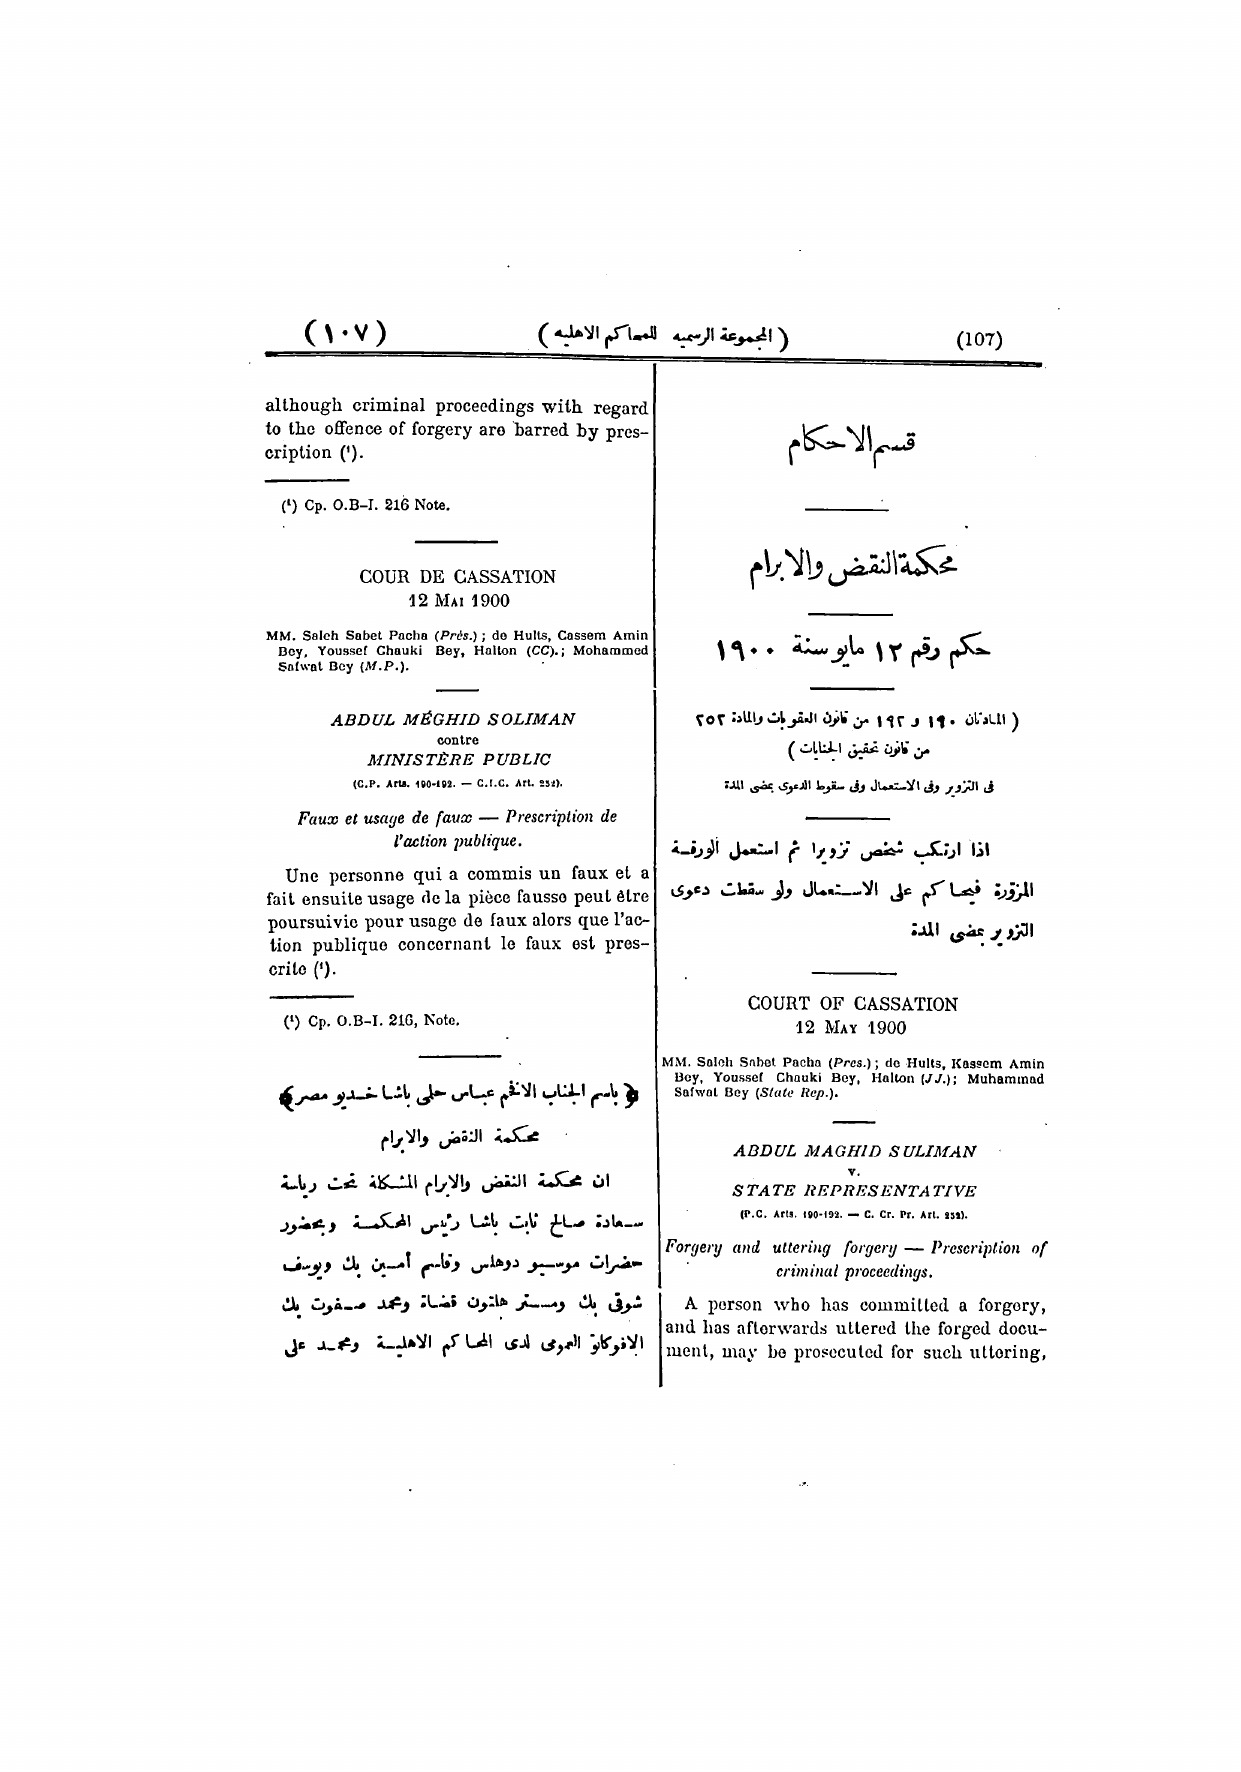 (107)
( المجموعة الرسميه للمحاكم الاهليه )
(١٠٧)
قسم الاحكام
محكمة النقض والابرام
حكم رقم ١٢ مايو سنة ١٩٠٠
( المادتان ١٩٠ و ١٩٢ من قانون العقوبات والمادة ٢٥٢
من قانون تحقيق الجنايات )
فى التزوير وفى الاستعمال وفى سقوط الدعوى بمضى المدة
اذا ارتكب شخص تزويرا ثم استعمل الورقة
المزوّرة فيحاكم على الاستعمال ولو سقطت دعوى
التزوير بمضى المدة
COURT OF CASSATION
12 MAY 1900
MM. Saleh Sabet Pacha (Pres.); de Hults, Kassem Amin
Bey, Youssef Chauki Bey, Halton (JJ.); Muhammad
Safwat Bey (State Rep.).
ABDUL MAGHID SULIMAN
v.
STATE REPRESENTATIVE
(P.C. Arts. 190-192. — C. Cr. Pr. Art. 252).
Forgery and uttering forgery — Prescription of
criminal proceedings.
A person who has committed a forgery,
and has afterwards uttered the forged docu-
ment, may be prosecuted for such uttering,
although criminal proceedings with regard
to the offence of forgery are barred by pres-
cription (¹).
(¹) Cp. O.B-I. 216 Note.
COUR DE CASSATION
12 MAI 1900
MM. Saleh Sabet Pacha (Prés.); de Hults, Cassem Amin
Bey, Youssef Chauki Bey, Halton (CC).; Mohammed
Safwat Bey (M.P.).
ABDUL MÉGHID SOLIMAN
contre
MINISTÈRE PUBLIC
(C.P. Arts. 190-192. — C.I.C. Art. 252).
Faux et usage de faux — Prescription de
l'action publique.
Une personne qui a commis un faux et a
fait ensuite usage de la pièce fausse peut être
poursuivie pour usage de faux alors que l'ac-
tion publique concernant le faux est pres-
crite (¹).
(¹) Cp. O.B-I. 216, Note.
﴿ باسم الجناب الافخم عباس حلمى باشا خديو مصر ﴾
محكمة النقض والابرام
ان محكمة النقض والابرام المشكلة تحت رياسة
سعادة صالح ثابت باشا رئيس المحكمة وبحضور
حضرات موسيو دوهلس وقاسم أمين بك ويوسف
شوقى بك ومستر هلتون قضاة ومحمد صفوت بك
الافوكاتو العمومى لدى المحاكم الاهلية ومحمد على